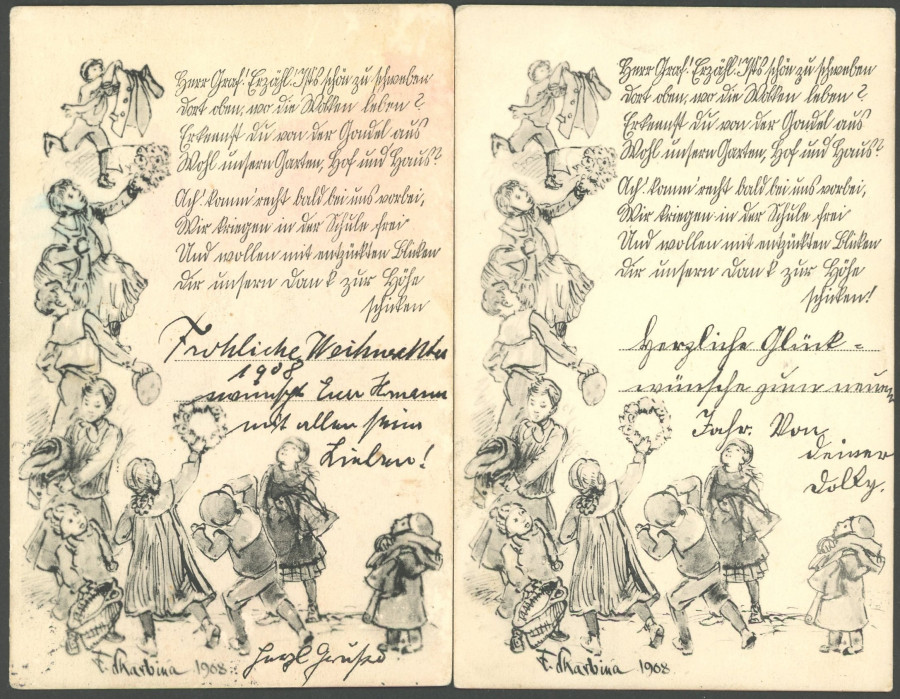 Herr Graf! Erzähl! Ist's schön zu schweben
Dort oben, wo die Wolken leben?
Erkennst du von der Gondel aus
Wohl unsern Garten, Hof und Haus?
Ach! komm' recht bald bei uns vorbei,
Wir kriegen in der Schule frei
Und wollen mit entzückten Blicken
Dir unsern Dank zur Höhe
schicken
Fröhliche Weihnachten
1908
wünscht Euer
mit allen sein
Lieben!
F. Skarbina 1908.
Herzl
Herr Graf! Erzähl! Ist's schön zu schweben
Dort oben, wo die Wolken leben?
Erkennst du von der Gondel aus
Wohl unsern Garten, Hof und Haus?
Ach! komm' recht bald bei uns vorbei,
Wir kriegen in der Schule frei
Und wollen mit entzückten Blicken
Dir unsern Dank zur Höhe
schicken!
Herzliche Glück-
wünsche zum neuen
Jahr. Von
deiner
Dolly.
F. Skarbina 1908